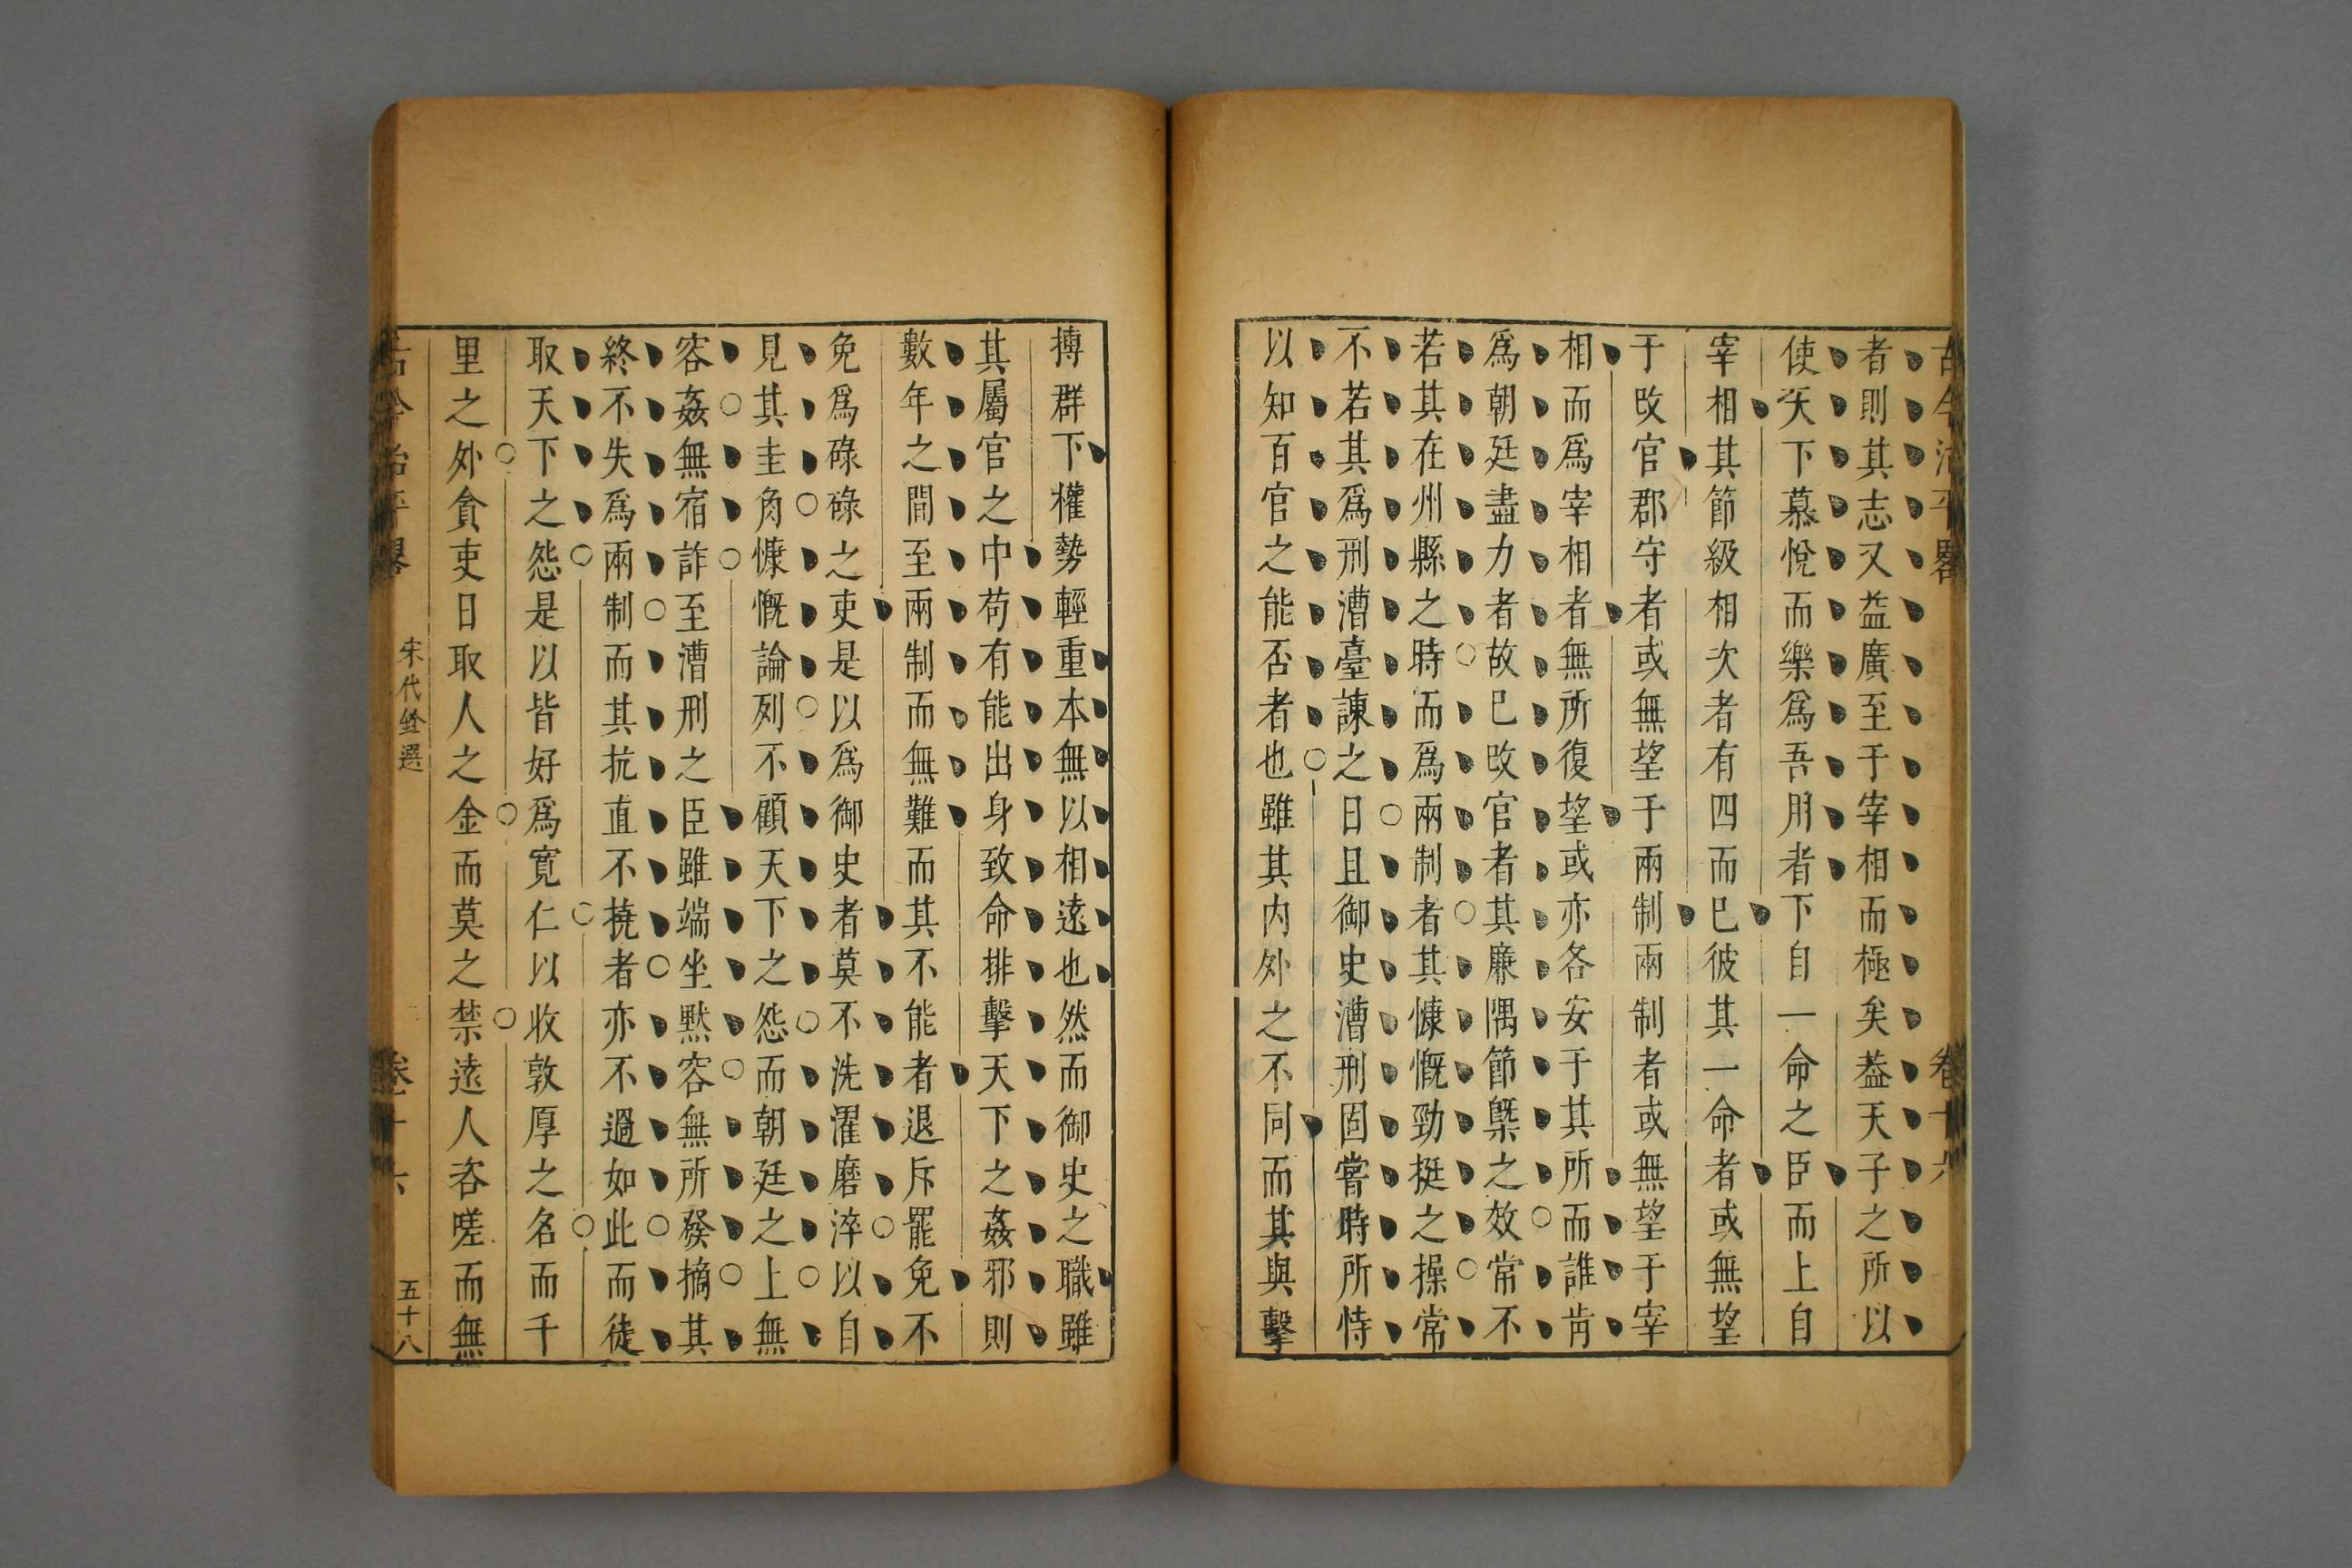 古今治平畧　卷十六
者則其志又益廣至于宰相而極矣葢天子之所以
使天下慕悅而樂爲吾用者下自一命之臣而上自
宰相其節級相次者有四而已彼其一命者或無望
于改官郡守者或無望于兩制兩制者或無望于宰
相而爲宰相者無所復望或亦各安于其所而誰肯
爲朝廷盡力者故已改官者其廉隅節槩之效常不
若其在州縣之時而爲兩制者其慷慨勁挺之操常
不若其爲刑漕臺諫之日且御史漕刑固嘗時所恃
以知百官之能否者也雖其内外之不同而其與擊
搏群下權勢輕重本無以相遠也然而御史之職雖
其屬官之中苟有能出身致命排擊天下之姦邪則
數年之間至兩制而無難而其不能者退斥罷免不
免爲碌碌之吏是以爲御史者莫不洗濯磨淬以自
見其圭角慷慨論列不顧天下之怨而朝廷之上無
容姦無宿詐至漕刑之臣雖端坐默容無所發摘其
終不失爲兩制而其抗直不撓者亦不過如此而徒
取天下之怨是以皆好爲寬仁以收敦厚之名而千
里之外貪吏日取人之金而莫之禁遠人咨嗟而無
古今治平畧　宋代銓選　卷十六　五十八